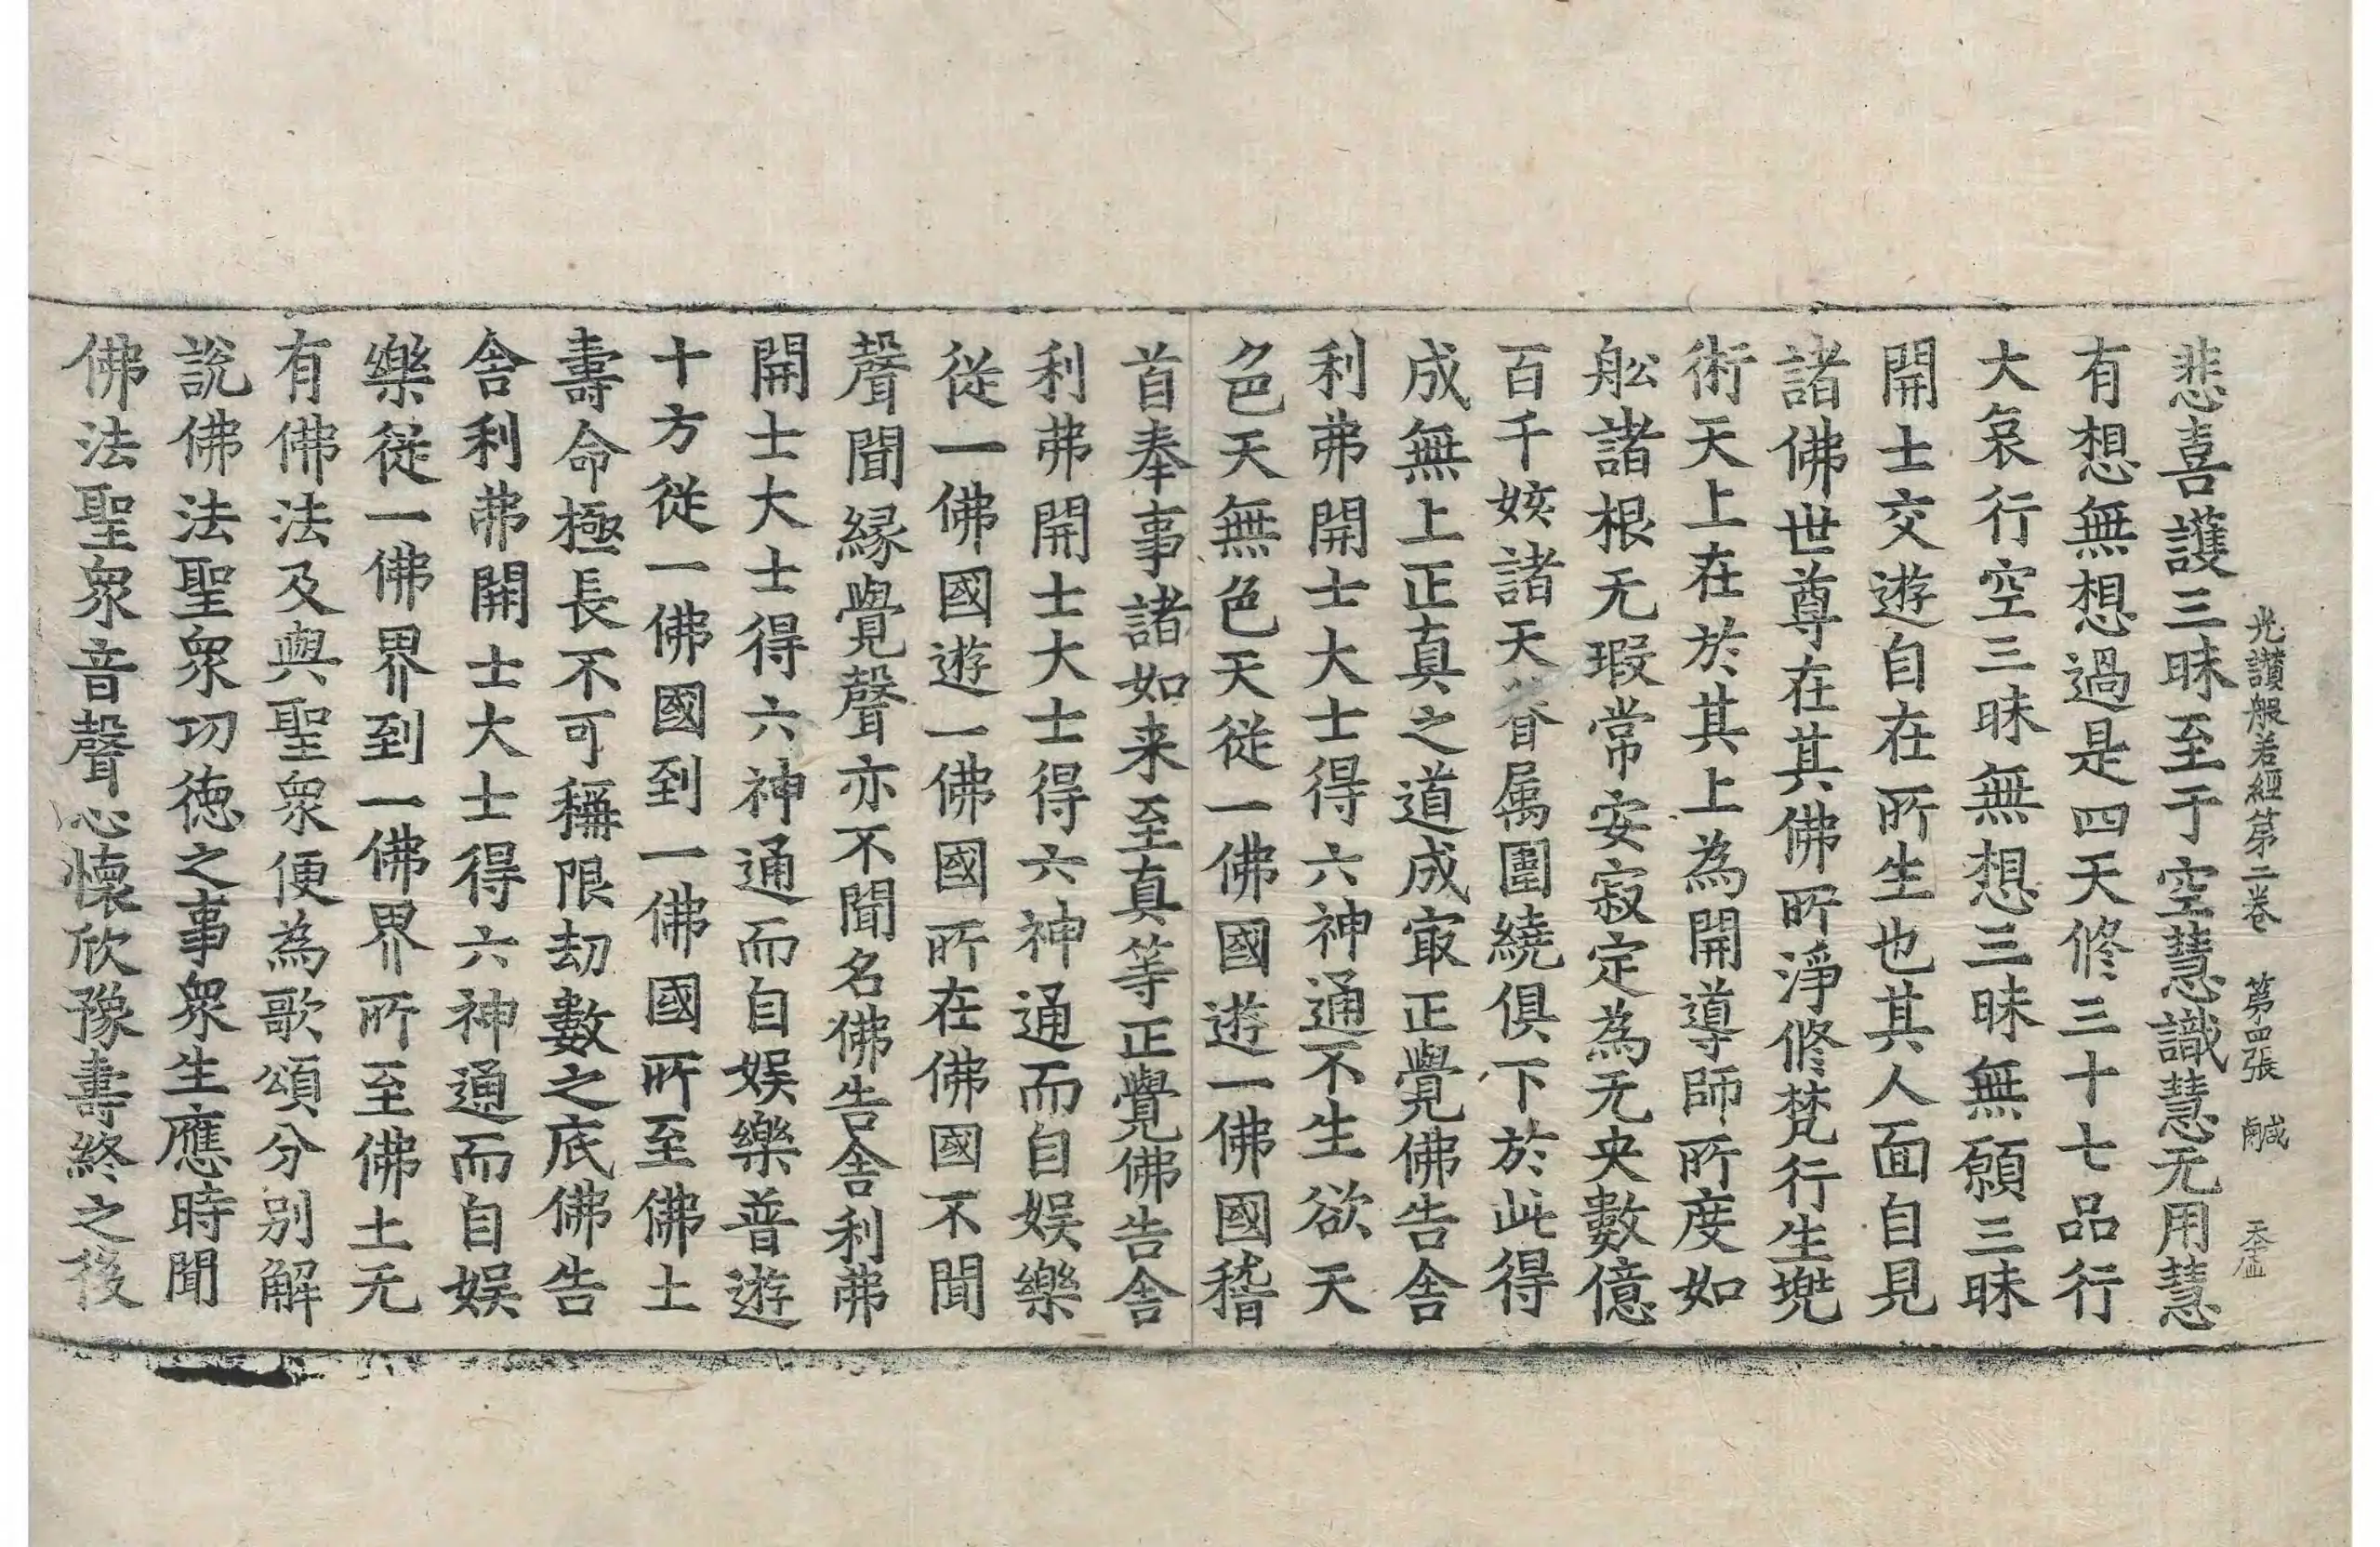 光讃般若經第二卷　第四張　鹹　天𫝹
悲喜護三昧至于空慧識慧无用慧
有想無想過是四天修三十七品行
大哀行空三昧無想三昧無願三昧
開士交遊自在所生也其人面自見
諸佛世尊在其佛所淨修梵行生兠
術天上在於其上為開導師所度如
舩諸根无瑕常安寂定為无央數億
百千姟諸天眷属圍繞俱下於此得
成無上正真之道成㝡正覺佛告舎
利弗開士大士得六神通不生欲天
色天無色天從一佛國遊一佛國稽
首奉事諸如来至真等正覺佛告舎
利弗開士大士得六神通而自娱樂
從一佛國遊一佛國所在佛國不聞
聲聞縁覺聲亦不聞名佛告舎利弗
開士大士得六神通而自娱樂普遊
十方從一佛國到一佛國所至佛土
壽命極長不可稱限劫數之底佛告
舎利弗開士大士得六神通而自娱
樂從一佛界到一佛界所至佛土无
有佛法及與聖衆便為歌頌分别解
說佛法聖衆功徳之事衆生應時聞
佛法聖衆音聲心懷欣豫壽終之後